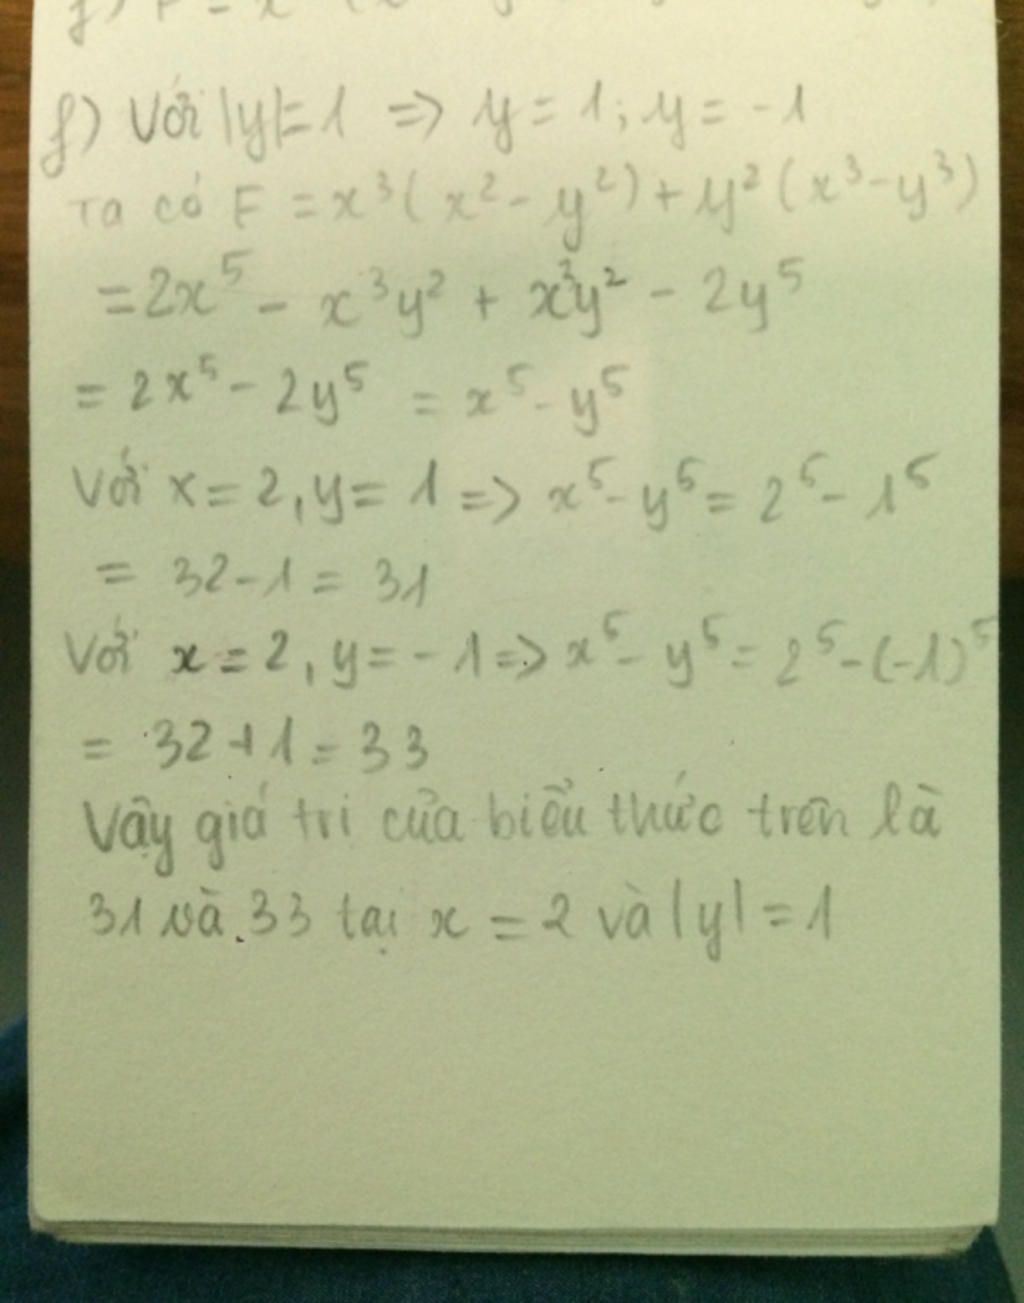 f) Với |y|=1 => y = 1; y = -1
Ta có F = x³(x² - y²) + y²(x³ - y³)
= 2x⁵ - x³y² + x³y² - 2y⁵
= 2x⁵ - 2y⁵ = x⁵ - y⁵
Với x = 2, y = 1 => x⁵ - y⁵ = 2⁵ - 1⁵
= 32 - 1 = 31
Với x = 2, y = -1 => x⁵ - y⁵ = 2⁵ - (-1)⁵
= 32 + 1 = 33
Vậy giá trị của biểu thức trên là
31 và 33 tại x = 2 và |y| = 1